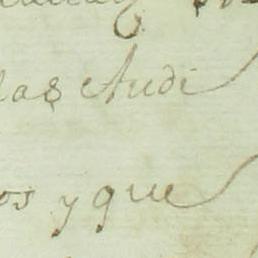 las Audi
os y que